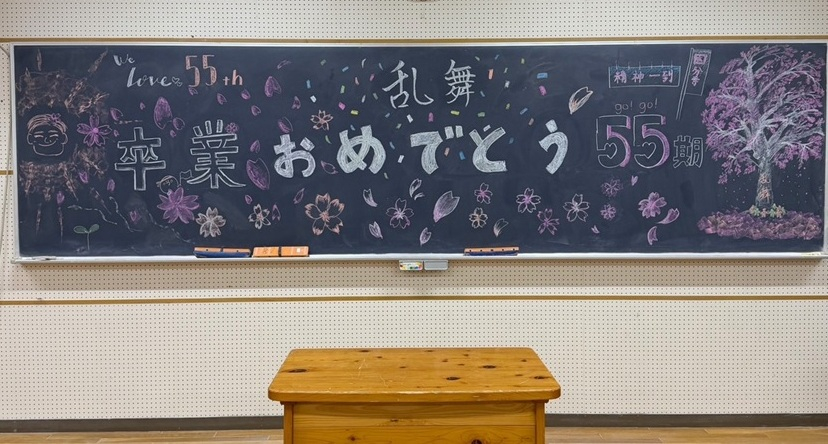 We
Love 55th
乱舞
精神一到
国分寺
go! go!
卒業おめでとう 55期